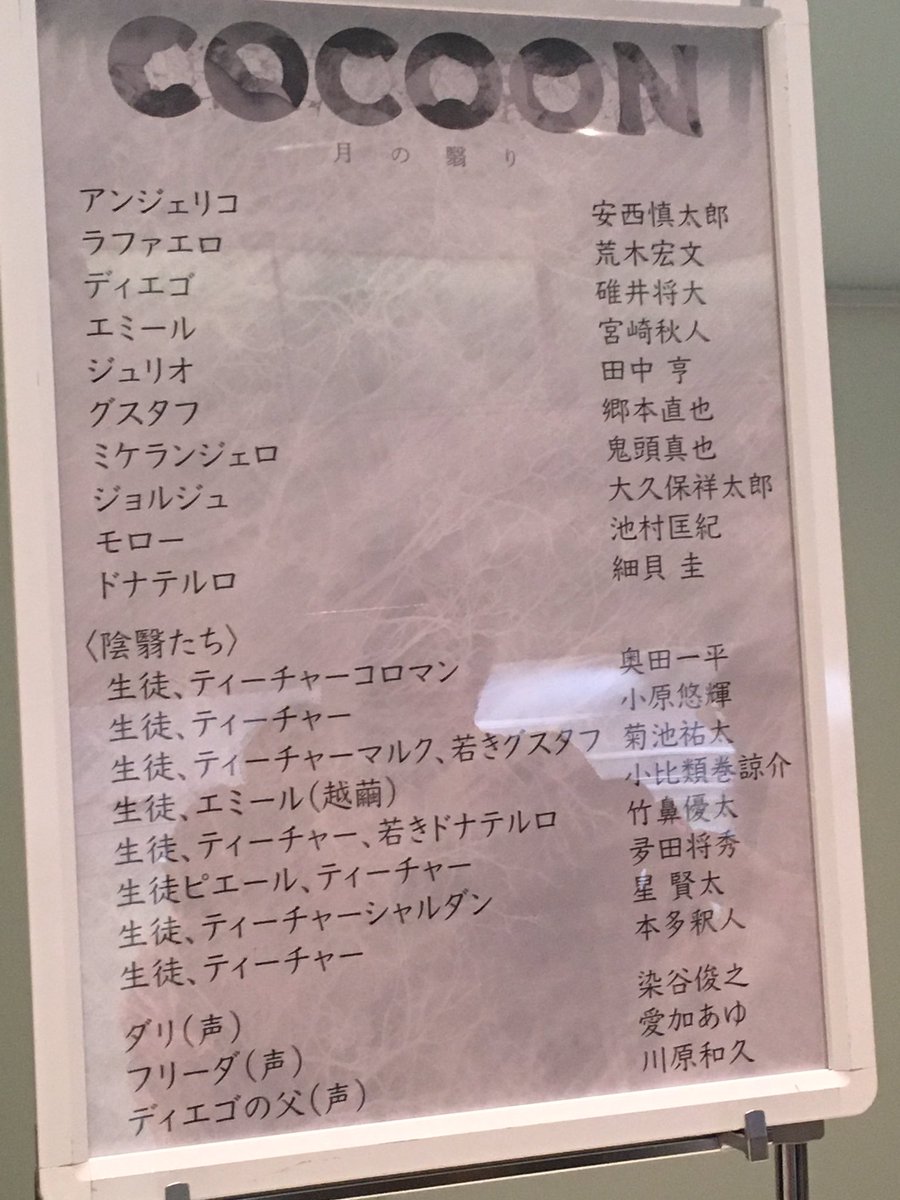 COCOON
月の翳り
アンジェリコ 安西慎太郎
ラファエロ 荒木宏文
ディエゴ 碓井将大
エミール 宮崎秋人
ジュリオ 田中 亨
グスタフ 郷本直也
ミケランジェロ 鬼頭真也
ジョルジュ 大久保祥太郎
モロー 池村匡紀
ドナテルロ 細貝 圭
〈陰翳たち〉
生徒、ティーチャーコロマン 奥田一平
生徒、ティーチャー 小原悠輝
生徒、ティーチャーマルク、若きグスタフ 菊池祐太
生徒、エミール(越繭) 小比類巻諒介
生徒、ティーチャー、若きドナテルロ 竹鼻優太
生徒ピエール、ティーチャー 田将秀
生徒、ティーチャーシャルダン 星 賢太
生徒、ティーチャー 本多釈人
ダリ(声) 染谷俊之
フリーダ(声) 愛加あゆ
ディエゴの父(声) 川原和久